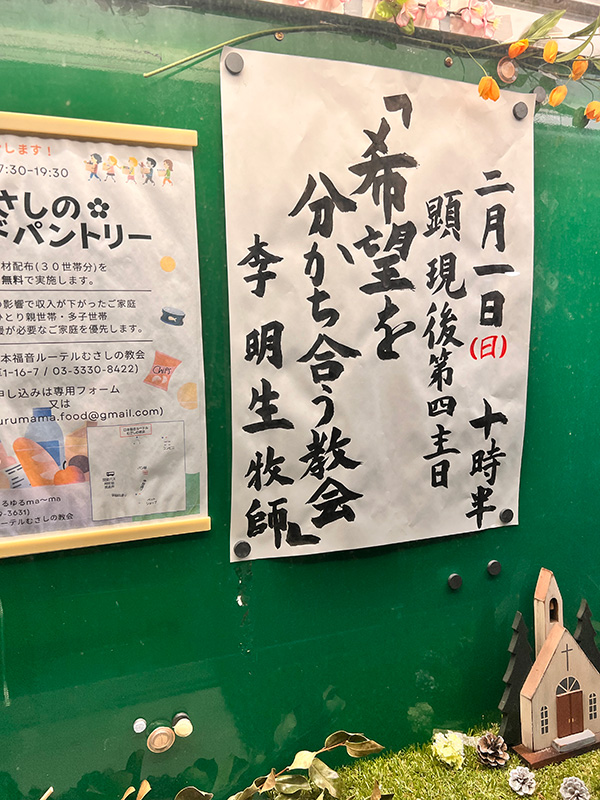 二月一日(日) 十時半
顕現後第四主日
「希望を
分かち合う教会」
李 明生 牧師
します!
7:30-19:30
さしの
ドパントリー
材配布(30世帯分)を
無料で実施します。
影響で収入が下がったご家庭
ひとり親世帯・多子世帯
が必要なご家庭を優先します。
本福音ルーテルむさしの教会
1-16-7 / 03-3330-8422)
申し込みは専用フォーム
又は
urumama.food@gmail.com)
Chips
るゆるma〜ma
-3631)
ーテルむさしの教会